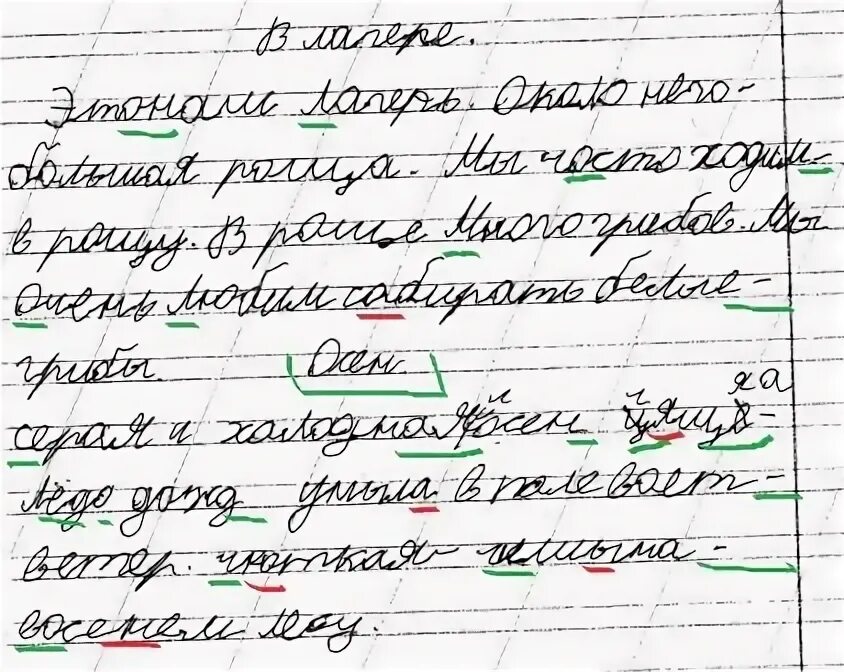 В лагере.
Этонаш Лагерь. Около него-
большая роща. Мы часто ходим-
в рощу. В роще Много грибов. Мы
очень Любим сабирать белые-
грибы. Осен
серая и халодная осен
дожд уныла в поле воет-
ветер. чюткая- тишына-
восенем лесу.